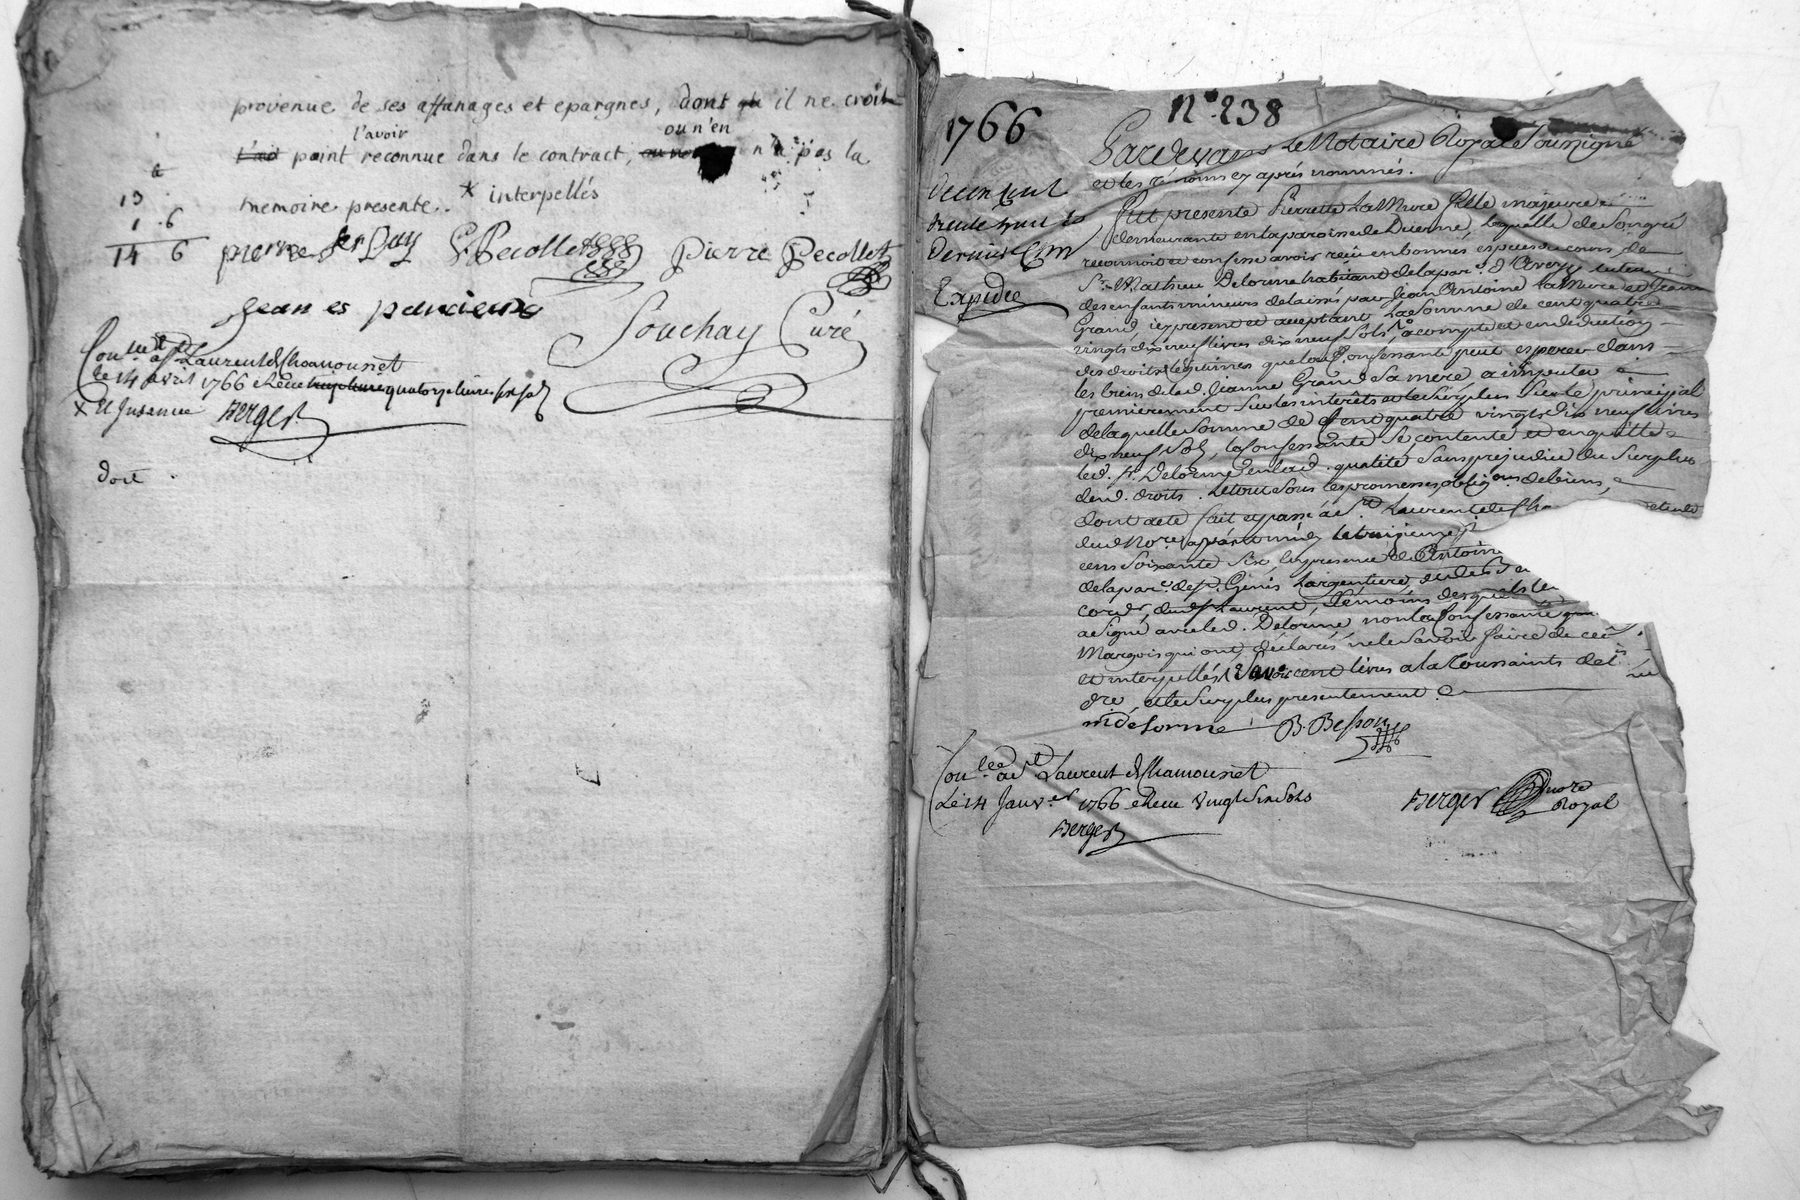 provenue de ses affanages et epargnes, dont il ne croit
l'avoir ou n'en
point reconnue dans le contract, n'a pas la
memoire presente. * interpellés
13
1 . 6
14 6
G. Pecollet Pierre Pecollet
Souchay Curé
Con.lée a St Laurent de Chamousset
le 14 avril 1766 et Receu quatorze livres six sols
Berger
doit
1766
N° 238
Pardevant Le Notaire Royal Soussigné
et les témoins cy après nommés.
Fut presente Pierrette La Mure fille majeure
demeurante en la paroisse de Duerne, laquelle de son gré
reconnoit et confesse avoir reçu en bonnes especes du cours de
Sr. Mathieu Delorme habitant de la par. d'Aveyze tuteur
des enfants mineurs delaissés par Jean Antoine La Mure et Jeanne
Grand, icy present et acceptant La Somme de cent quatre
vingts dix neuf livres dix neuf sols, a compte et en deduction
des droits légitimes que la de Confessante peut esperer dans
les biens de lad. Jeanne Grand Sa mere a imputer
premierement sur les interêts et le Surplus Sur le principal
de laquelle Somme de Cent quatre vingts dix neuf livres
dix neuf Sols, la Confessante Se contente et en quitte
led. Sr. Delorme en lad. qualité Sans prejudice du Surplus
desd. droits. Le tout Sous les promesses, oblig.ons de biens,
dont acte fait et passé a St. Laurent de Cha etude
dud. No.re apres midy le treizieme
cens Soixante Six, en presence de Antoine
de la par. de St. Genis Largentiere,
cord.r dud St Laurent, témoins desquels le
a Signé avec led. Delorme non la Confessante
Margois qui ont déclarés ne le Savoir faire de ce
et interpellés, Savoir cent livres a la Toussaints
dre, et le Surplus presentement.
m delorme B. Besson
Con.lée a St Laurent de Chamousset
Le 14 Janv.er 1766 et Receu Vingt Six Sols
Berger
Berger no.re
Royal
Expediée